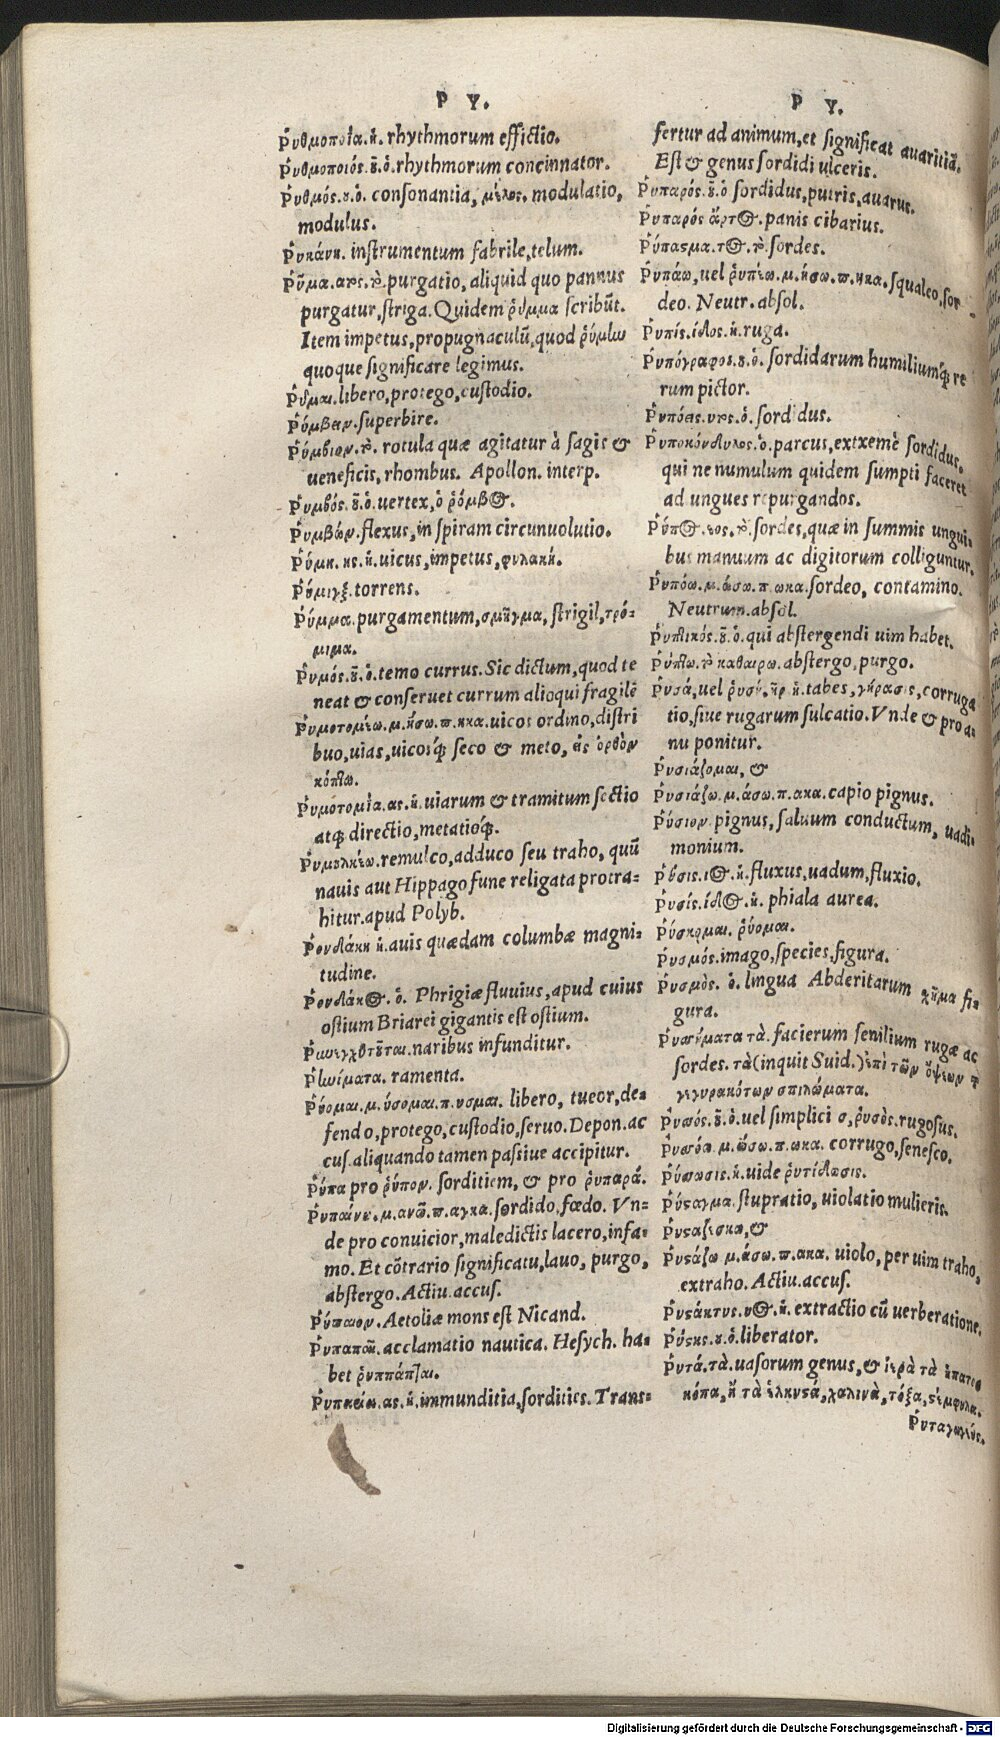 Ρ Υ.
Ῥυθμοποιΐα. ἡ. rhythmorum effictio.
Ῥυθμοποιός. οῦ. ὁ. rhythmorum concinnator.
Ῥυθμός. ου. ὁ. consonantia, μέλος. modulatio,
modulus.
Ῥυκάνη. instrumentum fabrile, telum.
Ῥῦμα. ατος. τὸ. purgatio, aliquid quo pannus
purgatur, striga. Quidem ῥύμμα scribūt.
Item impetus, propugnaculū, quod
quoque significare legimus.
Ῥῦμαι. libero, protego, custodio.
superbire.
Ῥύμβιον. τὸ. rotula quæ agitatur à sagis &
ueneficis, rhombus. Apollon. interp.
Ῥυμβός. οῦ. ὁ. uertex, ὁ ῥόμβος.
Ῥυμβών. flexus, in spiram circunuolutio.
Ῥύμη. ης. ἡ. uicus, impetus, φυλακή.
torrens.
Ῥύμμα. purgamentum, σμῆγμα, strigil, τρό-
μιμα.
Ῥυμός. οῦ. ὁ. temo currus. Sic dictum, quod te
neat & conseruet currum alioqui fragilē
Ῥυμοτομέω. μ. ήσω. π. ηκα. uicos ordino, distri
buo, uias, uicosq́; seco & meto, εἰς ὀρθὸν
κόπτω.
Ῥυμοτομία. ας. ἡ. uiarum & tramitum sectio
atq; directio, metatioq́;.
Ῥυμουλκέω. remulco, adduco seu traho, quū
nauis aut Hippago fune religata protra-
hitur. apud Polyb.
Ῥυνδάκη ἡ. auis quædam columbæ magni-
tudine.
Ῥυνδάκος. ὁ. Phrigiæ fluuius, apud cuius
ostium Briarei gigantis est ostium.
naribus infunditur.
ramenta.
Ῥύομαι. μ. ύσομαι. π. υσμαι. libero, tueor, de-
fendo, protego, custodio, seruo. Depon. ac
cus. aliquando tamen passiue accipitur.
Ῥύπα pro ῥύπον. sorditiem, & pro ῥυπαρά.
Ῥυπαίνω. μ. ανῶ. π. αγκα. sordido, fœdo. Vn-
de pro conuicior, maledictis lacero, infa-
mo. Et cōtrario significatu, lauo, purgo,
abstergo. Actiu. accus.
Ῥύπαιον. Aetoliæ mons est Nicand.
Ῥυπαπαῖ. acclamatio nautica. Hesych. ha-
bet ῥυππάπται.
ας. ἡ. immunditia, sordities. Trans-
Ρ Υ.
fertur ad animum, et significat auaritiā.
Est & genus sordidi ulceris.
Ῥυπαρός. οῦ. ὁ sordidus, putris, auarus.
Ῥυπαρός ἄρτος. panis cibarius.
Ῥύπασμα. τος. τὸ. sordes.
Ῥυπάω, uel ῥυπέω. μ. ήσω. π. ηκα. squaleo, sor
deo. Neutr. absol.
Ῥυπίς. ίδος. ἡ. ruga.
Ῥυπόγραφος. ου. ὁ. sordidarum humiliumq́; re
rum pictor.
Ῥυπόεις. ὁ. sordidus.
Ῥυποκόνδυλος. ὁ. parcus, extremè sordidus,
qui ne numulum quidem sumpti faceret
ad ungues repurgandos.
Ῥύπος. εος. τὸ. sordes, quæ in summis ungui-
bus manuum ac digitorum colliguntur.
Ῥυπόω. μ. ώσω. π. ωκα. sordeo, contamino.
Neutrum. absol.
Ῥυπτικός. οῦ. ὁ. qui abstergendi uim habet.
Ῥύπτω. τὸ καθαίρω. abstergo, purgo.
Ῥυσά, uel ῥυσή. ῆς ἡ. tabes, γήρασις, corruga
tio, siue rugarum sulcatio. Vnde & pro a-
nu ponitur.
Ῥυσιάζομαι, &
Ῥυσιάζω. μ. άσω. π. ακα. capio pignus.
Ῥύσιον. pignus, saluum conductum, uadi-
monium.
Ῥύσις. ιος. ἡ. fluxus, uadum, fluxio.
Ῥυσίς. ίδος. ἡ. phiala aurea.
Ῥύσκομαι. ῥύομαι.
Ῥυσμός. imago, species, figura.
Ῥυσμὸς. ὁ. lingua Abderitarum χῆμα fi-
gura.
τὰ. facierum senilium rugæ ac
sordes. τὰ (inquit Suid.) ἐπὶ τῶν ὄψεων τ
γεγυρακότων σπιλώματα.
Ῥυσσός. οῦ. ὁ. uel simplici σ, ῥυσὸς. rugosus.
Ῥυσσόω. μ. ώσω. π. ωκα. corrugo, senesco.
Ῥύσωσις. ἡ. uide ῥυτίδωσις.
Ῥύσαγμα. stupratio, uiolatio mulieris.
&
Ῥυστάζω μ. άσω. π. ακα. uiolo, per uim traho,
extraho. Actiu. accus.
Ῥυστάκτυς. υος. ἡ. extractio cū uerberatione.
Ῥύστης. ου. ὁ. liberator.
Ῥυτά. τὰ. uasorum genus, & ἱερὰ τὰ
κόπα, ἢ τὰ ἑλκυστά, χαλινὰ, τόξα,
Ῥυταγωγεύς.
Digitalisierung gefördert durch die Deutsche Forschungsgemeinschaft - DFG